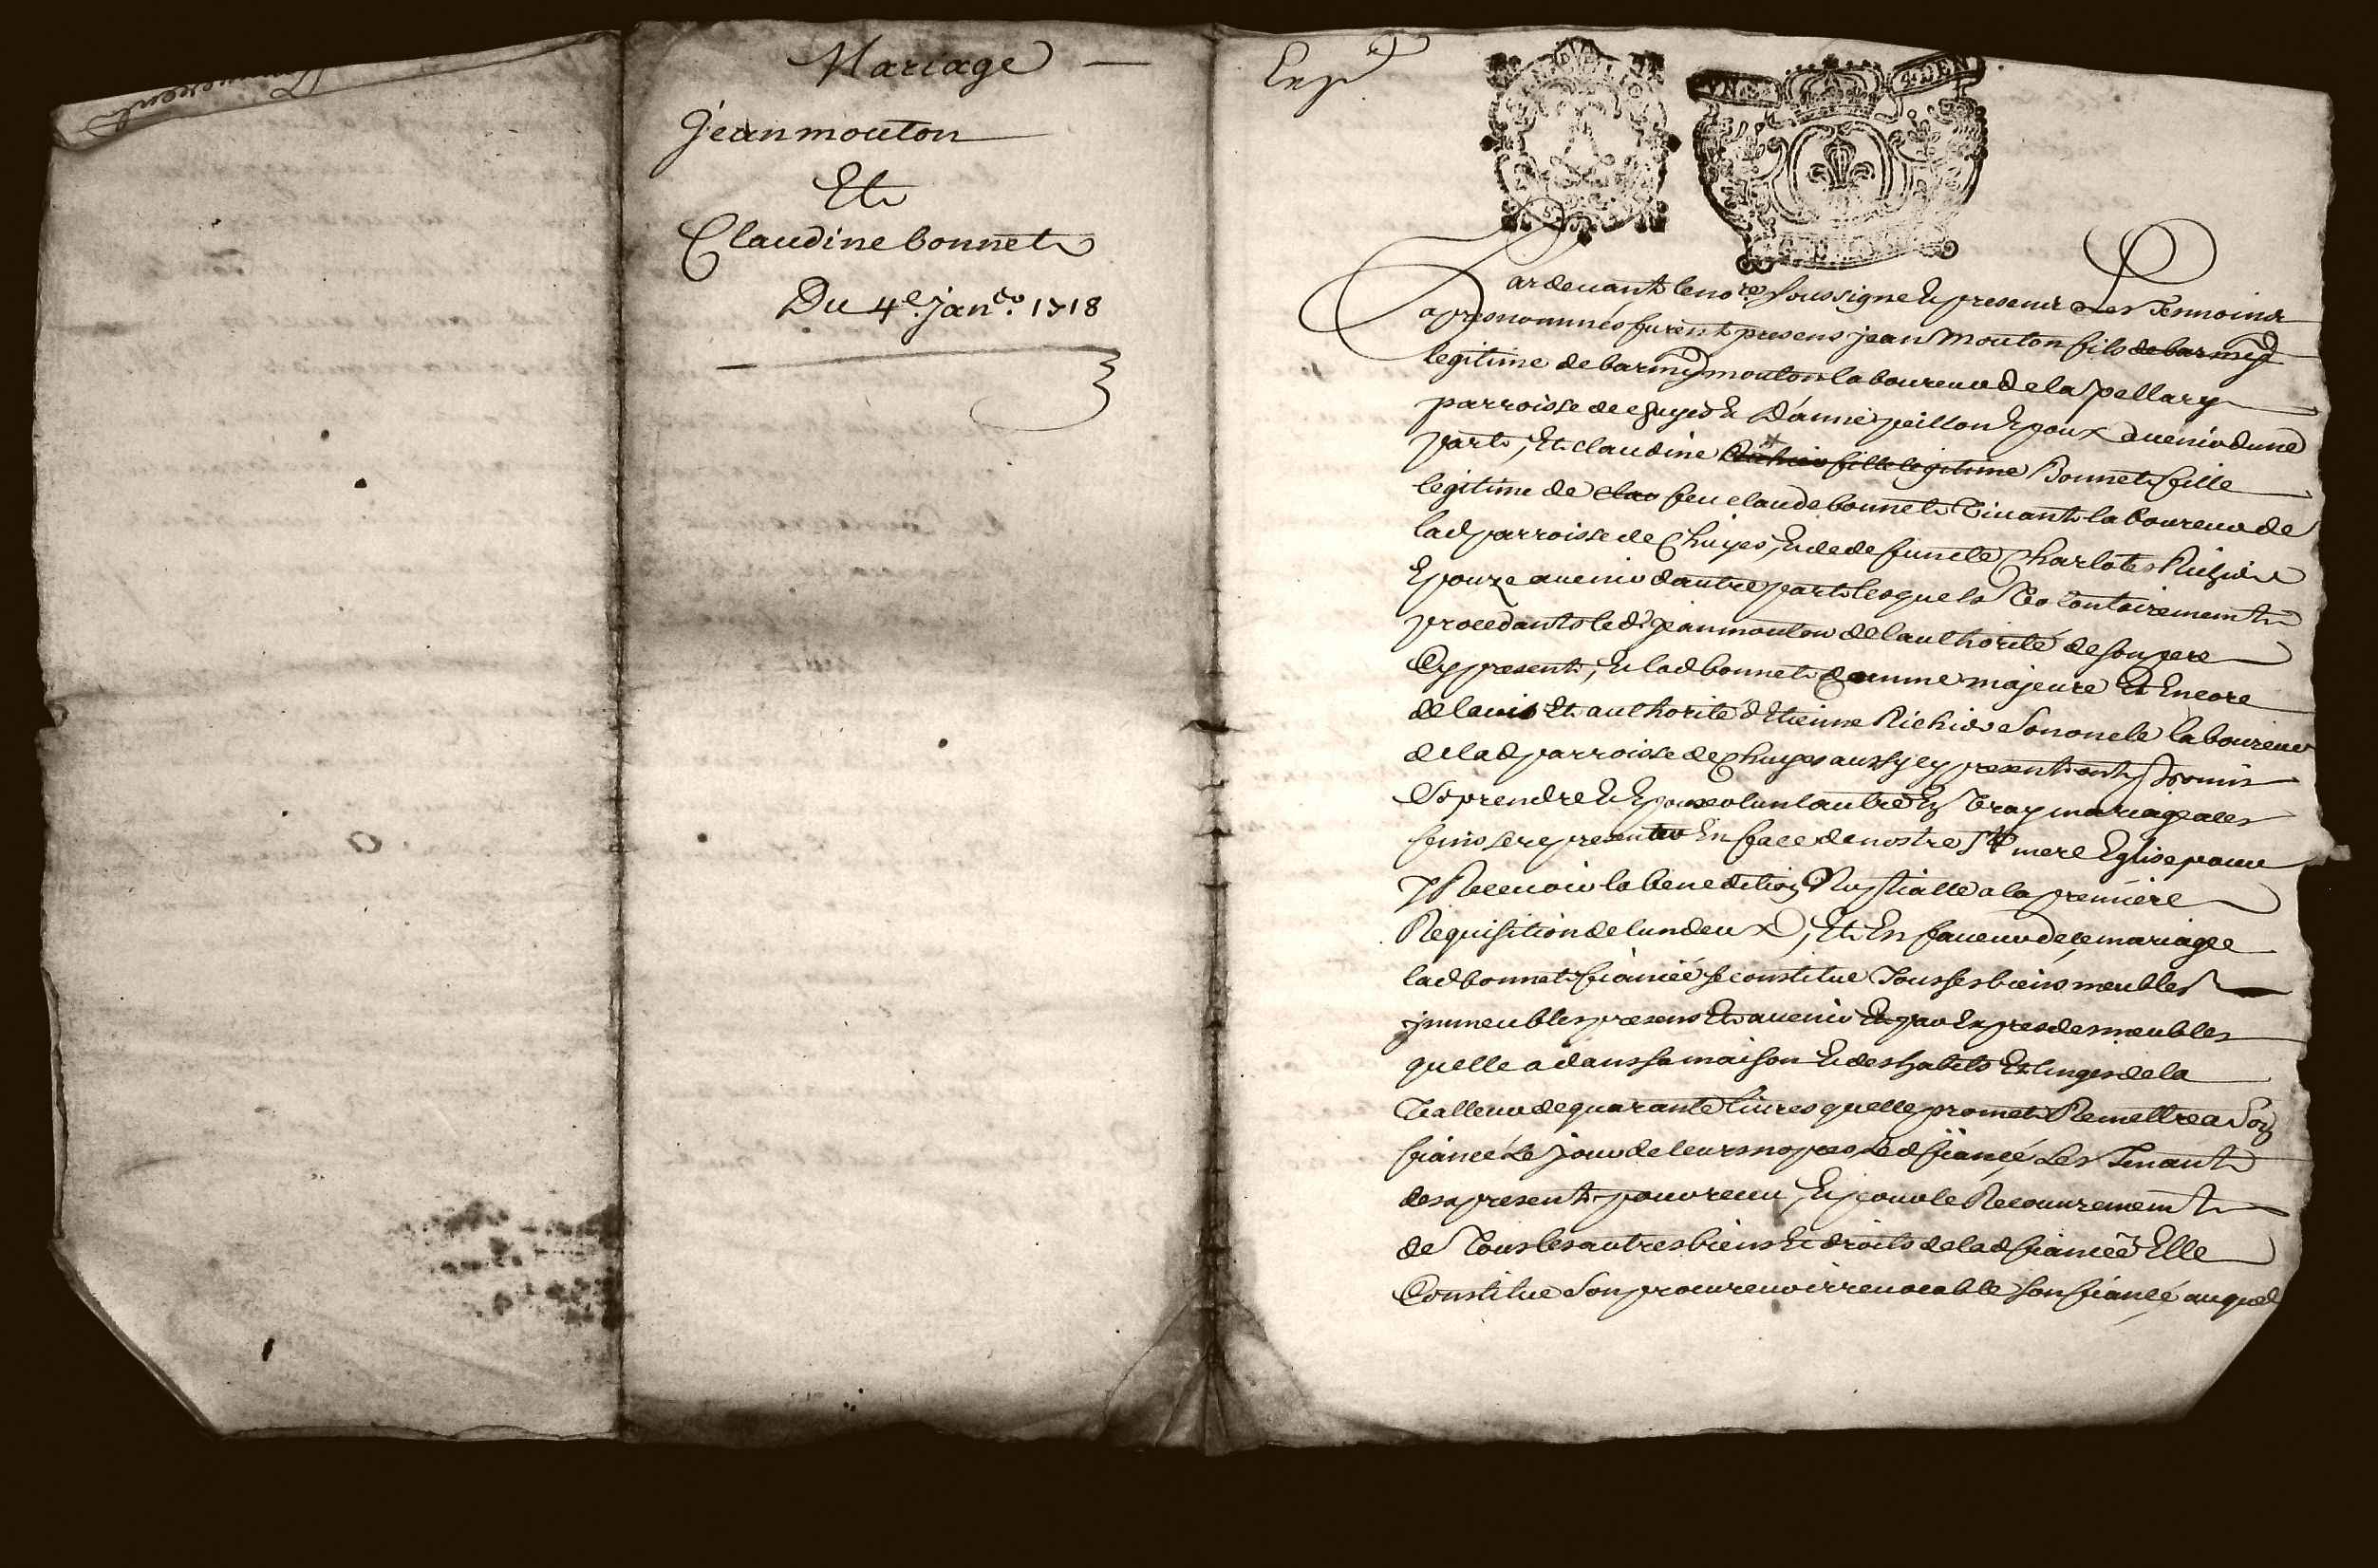 Mariage
jean mouton
Et
Claudine bonnet
Du 4e. janer. 1718
Exp.d
VN DEN
Pardevant le nore. soussigné Et presens Les Tesmoins
apres nommés furent presens jean Mouton fils de barmy
legitime de barmy mouton laboureur de la pellary
parroisse de Et D'anne peillon Epoux avenir dune
part, Et claudine Richier fille legitime Bonnet fille
legitime de clau feu claude bonnet vivant laboureur de
lad parroisse de Chuyes, Et de defuncte Charlote Richier
Epouze avenir dautre part lesquels volontairement
procedants led. jean mouton de l'authorité de son pere
Cy present, Et lad bonnet comme majeure Et Encore
de lavis Et authorité d'Etienne Richier son oncle laboureur
de lad parroisse de Chuyes aussy cy present ont promis
se prendre Et Epouser lun lautre En vray mariage a ces
fins se representer En face de nostre Ste mere Eglise pour
y Recevoir la benediction Nuptialle a la premiere
Requisition de lun deux, Et En faveur de ce mariage
lad bonnet fiancée se constitue Tous ses biens meubles
jmmeubles presens Et avenir Et par Expres des meubles
quelle a dans sa maison Et des habits Et linges de la
valleur de quarante livres quelle promet Remettre a son
fiancé Le jour de leurs nopces led fiancé Les Tenant
des a present pour receu, Et pour le Recouvrement
de Tous les autres biens Et droits de lad fiancée Elle
Constitue son procureur irrevocable son fiancé auquel